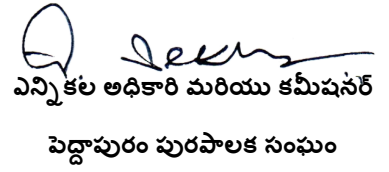 ఎన్నికల అధికారి మరియు కమీషనర్
పెద్దాపురం పురపాలక సంఘం